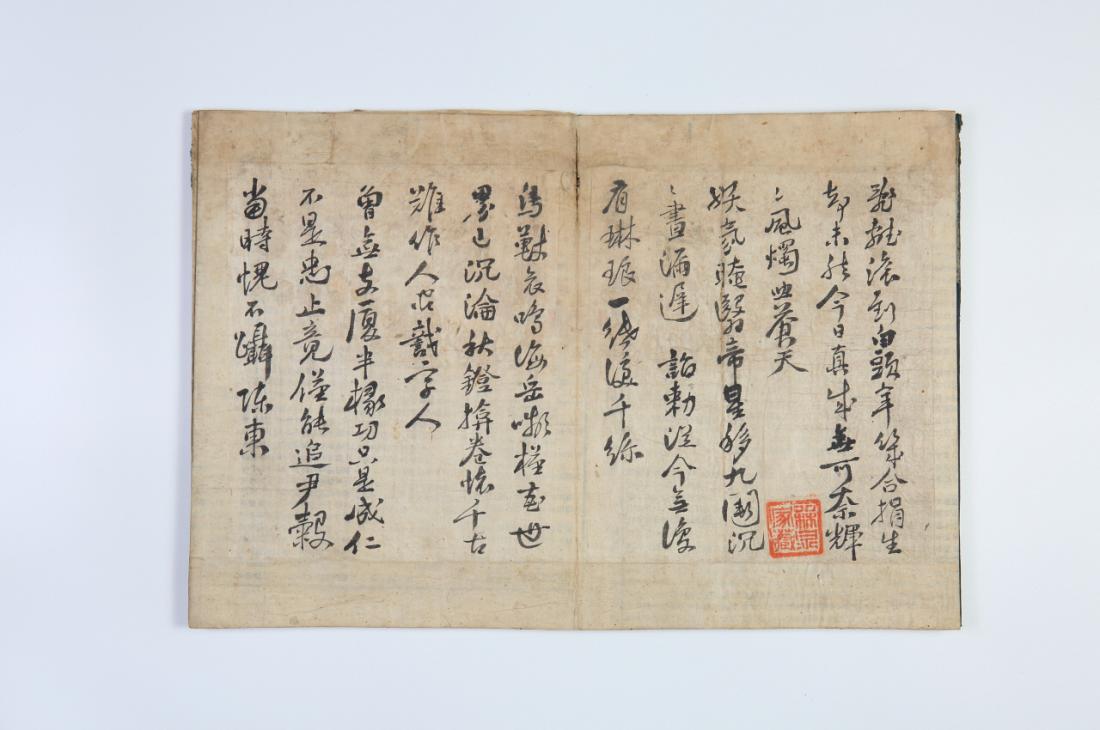 亂離滾到白頭年幾合捐生
却未然今日真成無可奈輝
〻風燭照蒼天
妖氛晻翳帝星移九闕沉
〻晝漏遲 詔勅從今無復
有琳琅一紙淚千絲
鳥獸哀鳴海岳嚬槿花世
界已沉淪秋鐙揜卷懷千古
難作人間識字人
曾無支廈半椽功只是成仁
不是忠止竟僅能追尹穀
當時愧不躡陳東
家藏